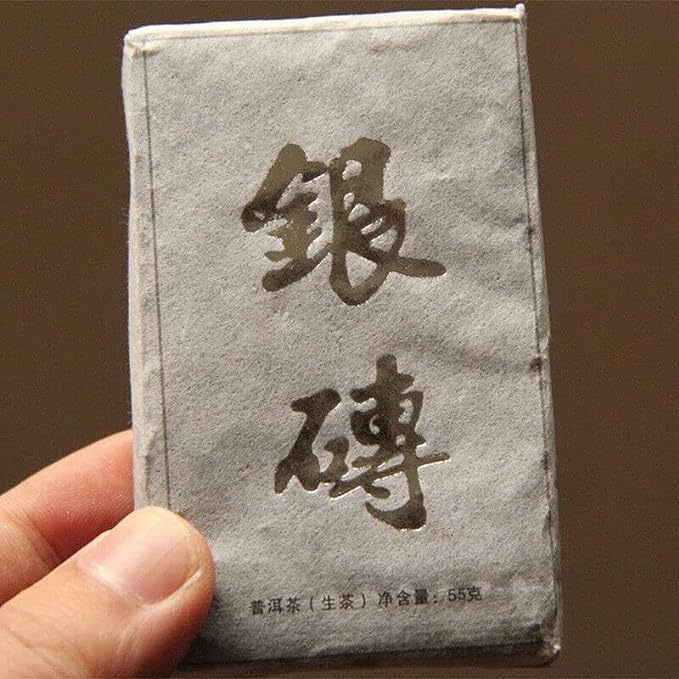 銀
磚
普洱茶（生茶）净含量：55克